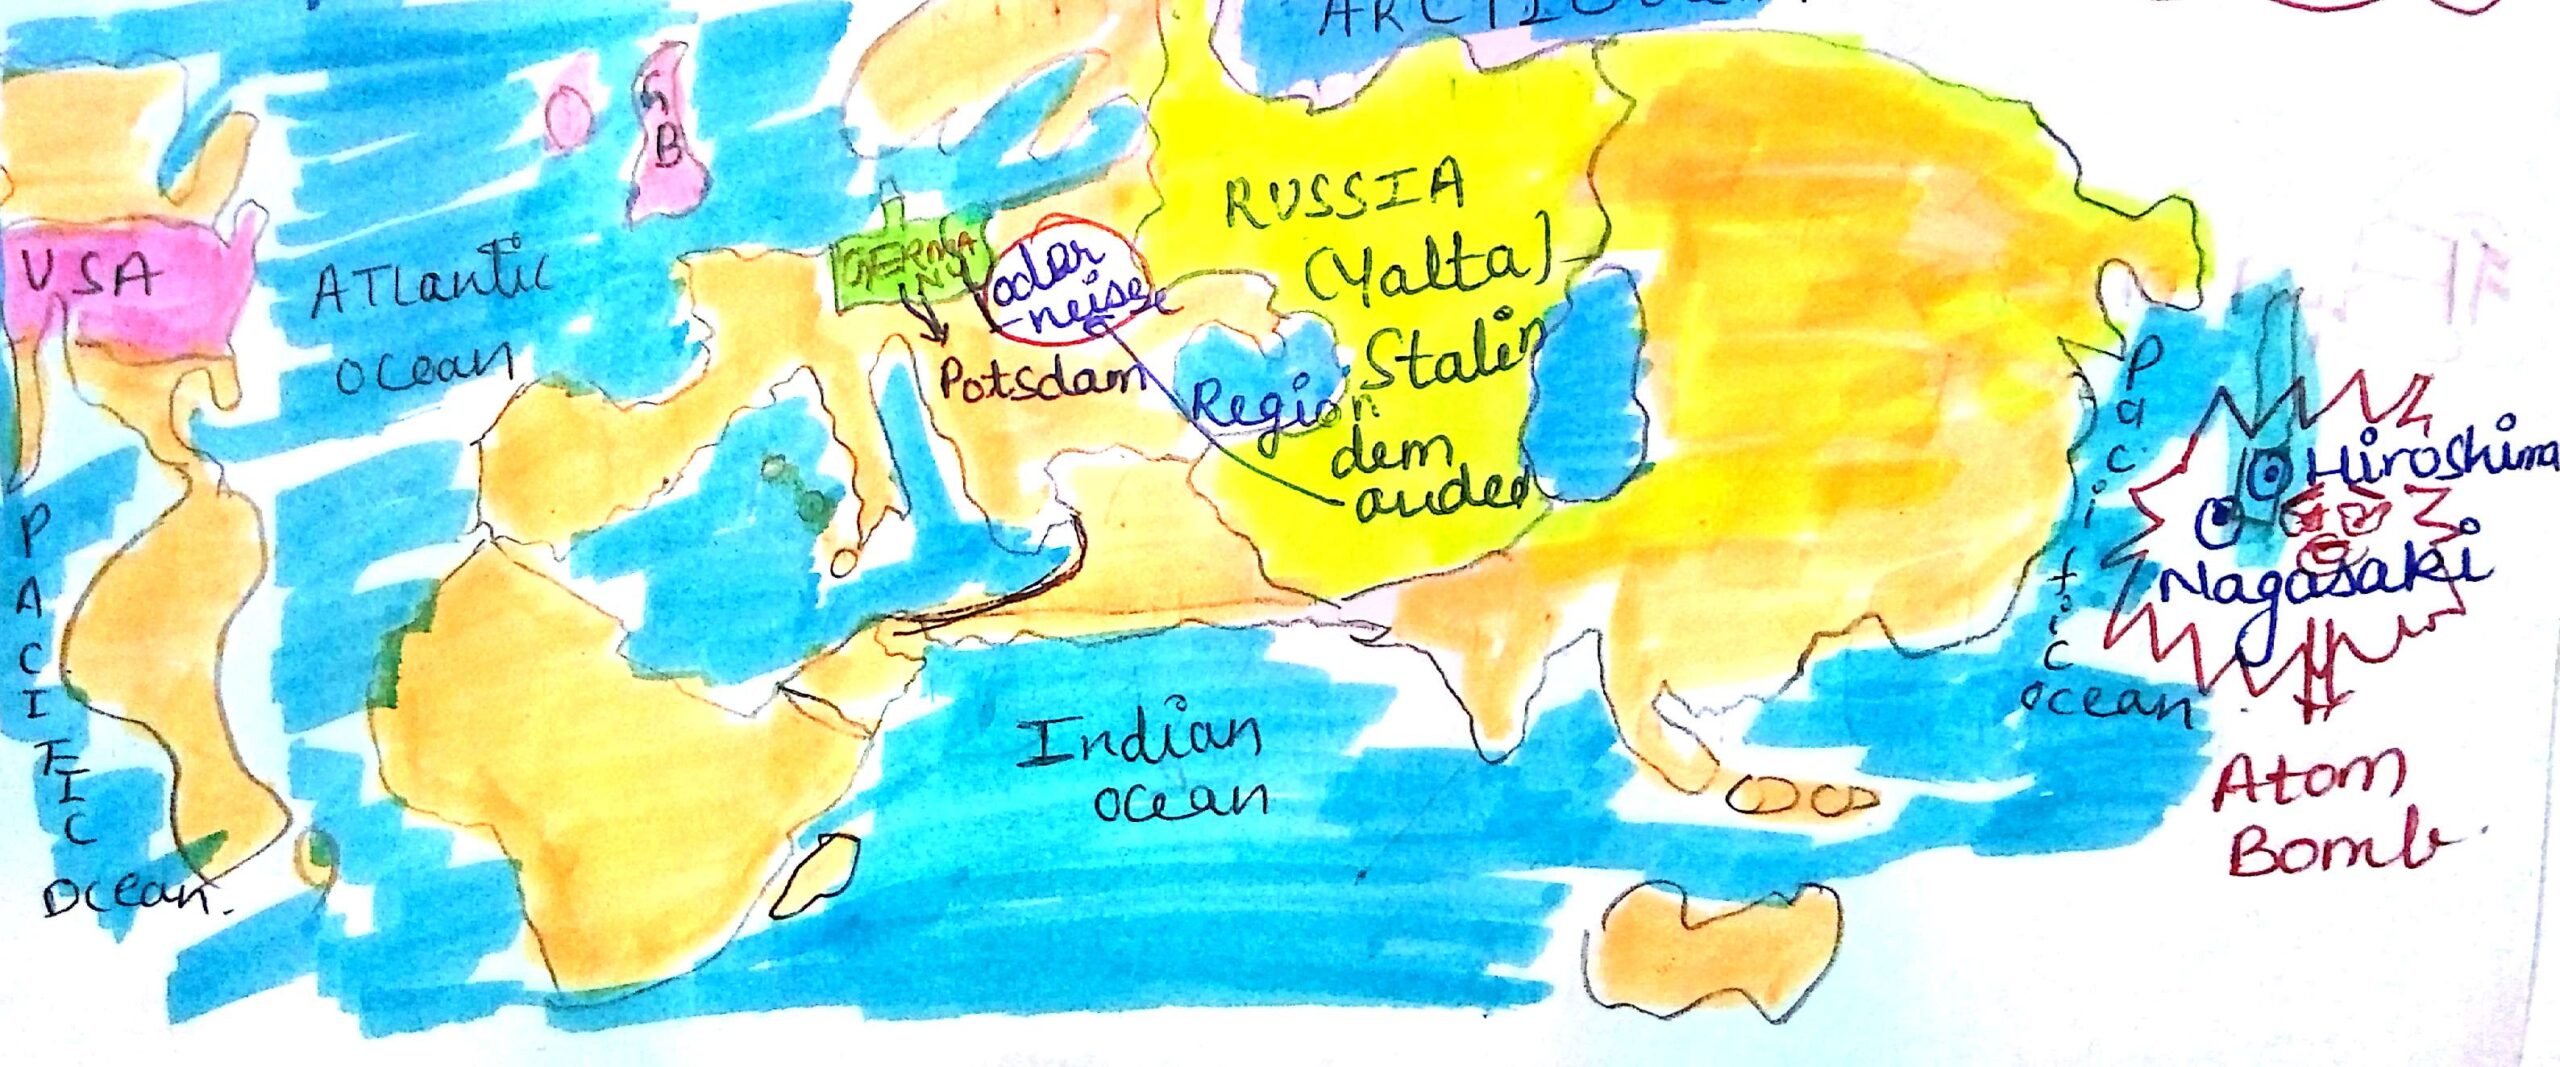 ARCTIC
G
B
USA
ATLantic
ocean
GERMA
NY
odar
-neisse
Potsdam
RUSSIA
(Yalta)
Stalin
Region
dem
anded
PACIFIC
Ocean.
Indian
ocean
Pacific
ocean
Hiroshima
Nagasaki
Atom
Bomb.